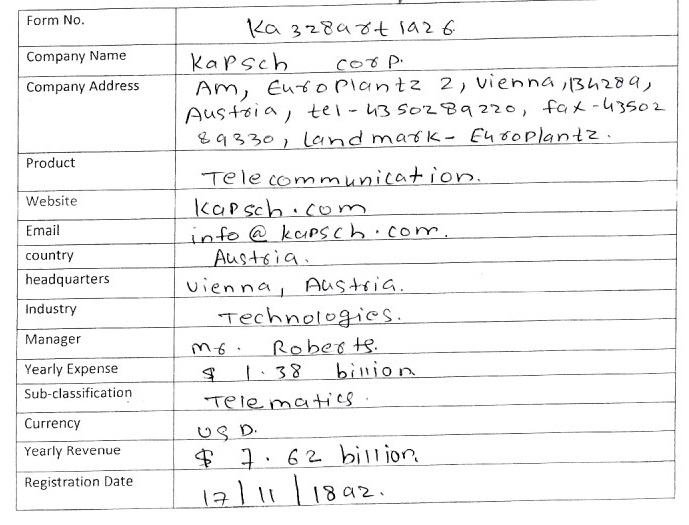 Form No. Ka328art1926
Company Name Kapsch corp.
Company Address Am, Europlantz 2, Vienna, 134289,
Austria, tel-4350289220, fax-43502
89330, Landmark- Europlantz.
Product Telecommunication.
Website Kapsch.com
Email info@kapsch.com.
country Austria.
headquarters Vienna, Austria.
Industry Technologies.
Manager Mr. Roberts.
Yearly Expense $ 1.38 billion
Sub-classification Telematics.
Currency USD.
Yearly Revenue $ 7.62 billion.
Registration Date 17/11/1892.